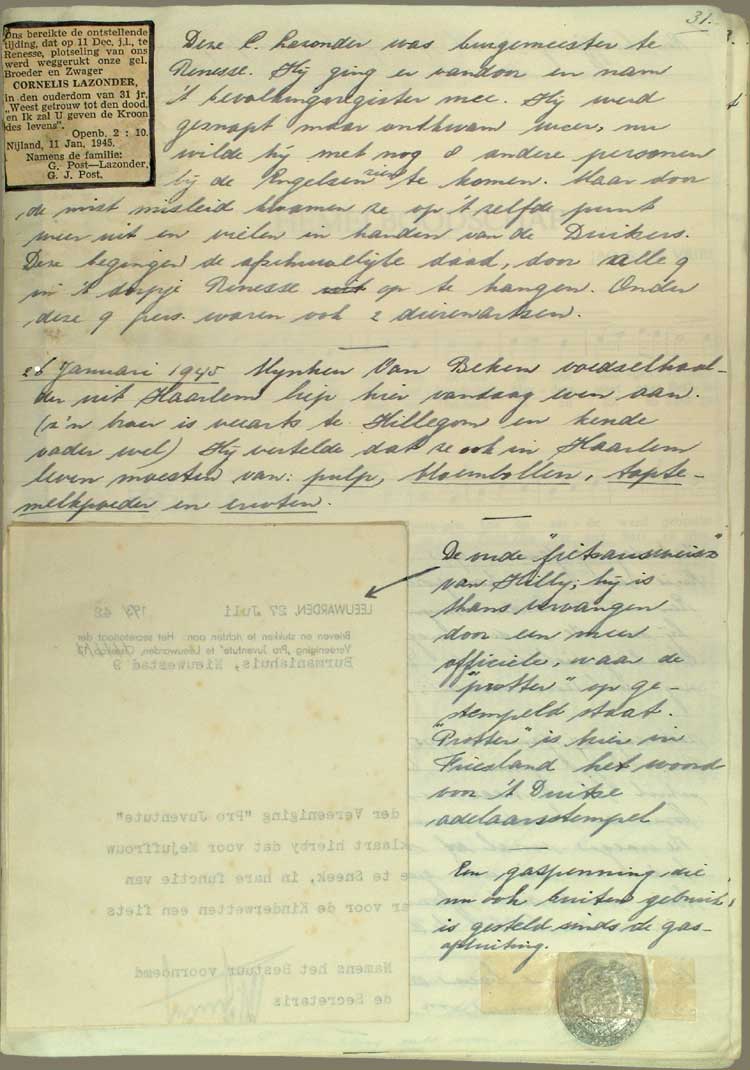 31.
Ons bereikte de ontstellende
tijding, dat op 11 Dec. j.l., te
Renesse, plotseling van ons
werd weggerukt onze gel.
Broeder en Zwager
CORNELIS LAZONDER,
in den ouderdom van 31 jr.
„Weest getrouw tot den dood,
en Ik zal U geven de Kroon
des levens".
Openb. 2 : 10.
Nijland, 11 Jan. 1945.
Namens de familie:
G. Post—Lazonder,
G. J. Post.
Deze C. Lazonder was burgemeester te
Renesse. Hij ging er vandoor en nam
't bevolkingsregister mee. Hij werd
gesnapt maar ontkwam weer, nu
wilde hij met nog 8 andere personen
bij de Engelsen zien te komen. Maar door
de mist misleid kwamen ze op 't zelfde punt
weer uit en vielen in handen van de Duitsers.
Deze begingen de afschuwelijke daad, door alle 9
in 't dorpje Renesse op te hangen. Onder
deze 9 pers. waren ook 2 dierenartsen.
26 Januari 1945 Mijnheer Van Beken voedselhaal-
der uit Haarlem liep hier vandaag even aan.
(z'n broer is veearts te Hillegom en kende
vader wel) Hij vertelde dat ze ook in Haarlem
leven moesten van: pulp, bloembollen, tapte-
melkpoeder en erwten.
LEEUWARDEN, 27 Juli 193 42
Brieven en stukken te richten aan: Het secretariaat der
Vereeniging „Pro Juventute" te Leeuwarden,
Burmaniahuis, Nieuwestad 9
der Vereeniging "Pro Juventute"
klaart hierby dat voor Mejuffrouw
te Sneek, in hare functie van
er voor de Kinderwetten een fiets
Namens het Bestuur voornoemd
de Secretaris
De oude "fietsausweis"
van Hilly; hij is
thans vervangen
door een meer
officiele, waar de
"protter" op ge-
stempeld staat.
"Protter" is hier in
Friesland het woord
voor 't Duitse
adelaarsstempel
Een gaspenning die
nu ook buiten gebruik
is gesteld sinds de gas-
afsluiting.